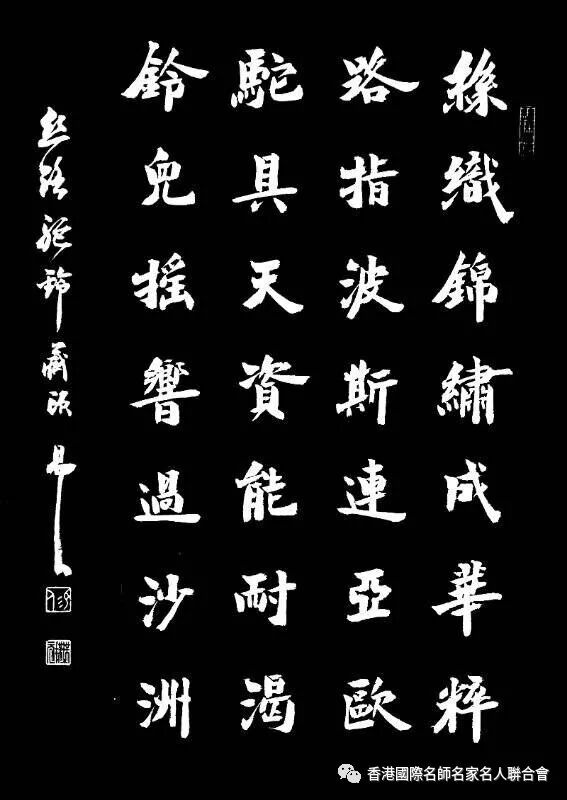 絲織錦繡成華粹
路指波斯連亞歐
駝具天資能耐渴
鈴兒摇響過沙洲
丝路驼铃藏頭
香港國際名師名家名人聯合會